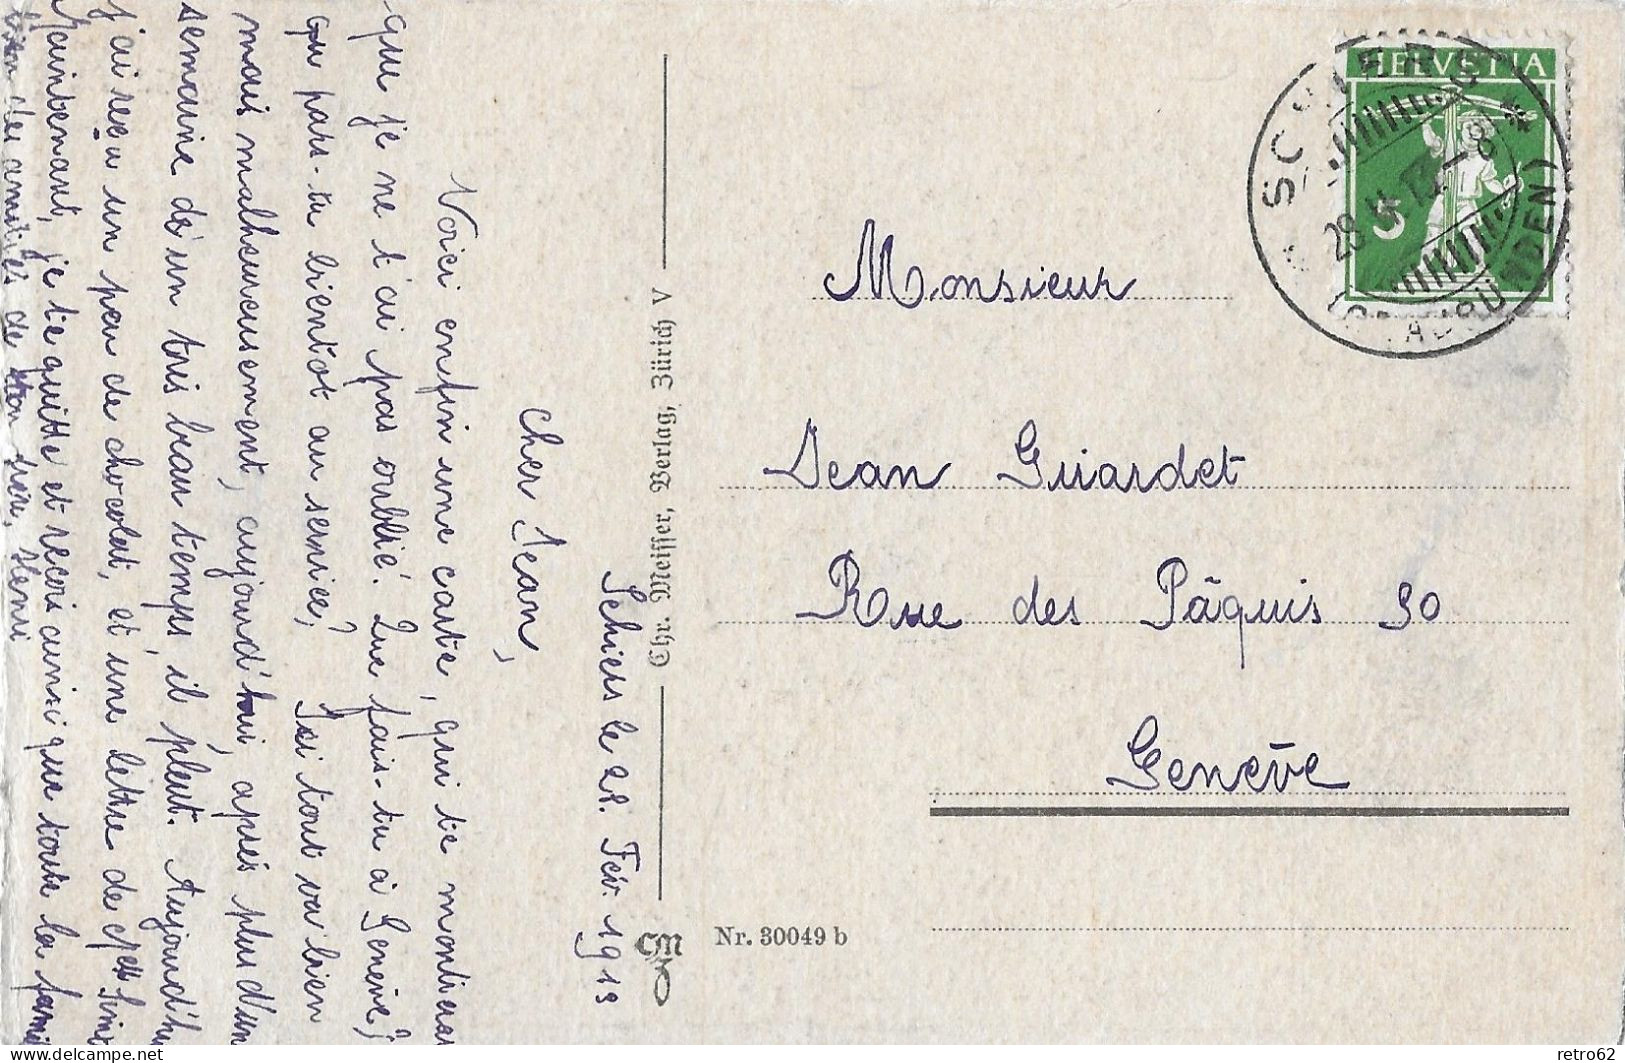 Schiers le 28. Fév. 1913
Cher Jean,
Voici enfin une carte, qui te montrera
que je ne t'ai pas oublié. Que fais-tu à Genève,
ou pars-tu bientôt au service?
Ici tout va bien
mais malheureusement, aujourd'hui, après plus d'une
semaine d'un très beau temps, il pleut. Aujourd'hui
j'ai reçu un peu de chocolat, et une lettre de
Maintenant, je te quitte et reçois ainsi que toute la famille
bien des amitiés de ton frère, Henri
Chr. Meisser, Verlag, Zürich V
CM
Nr. 30049 b
HELVETIA
5
SCHIERS
(GRAUBÜNDEN)
Monsieur
Jean Guiardet
Rue des Pâquis 30
Genève
delcampe.net
retro62